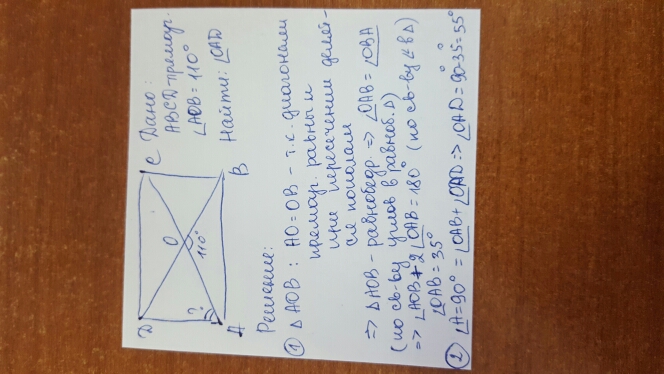 Дано:
ABCD-прямоуг.
∠AOB = 110°
Найти: ∠OAD
D
C
O
110°
?
A
B
Решение:
① △AOB : AO = OB - т.к. диагонали
прямоуг. равны и
при пересечении делят-
ся пополам
=> △AOB - равнобедр. => ∠OAB = ∠OBA
(по св-ву углов в равноб. △)
=> ∠AOB + 2∠OAB = 180° (по св-ву ∠ в △)
∠OAB = 35°
② ∠A = 90° = ∠OAB + ∠OAD => ∠OAD = 90°-35° = 55°